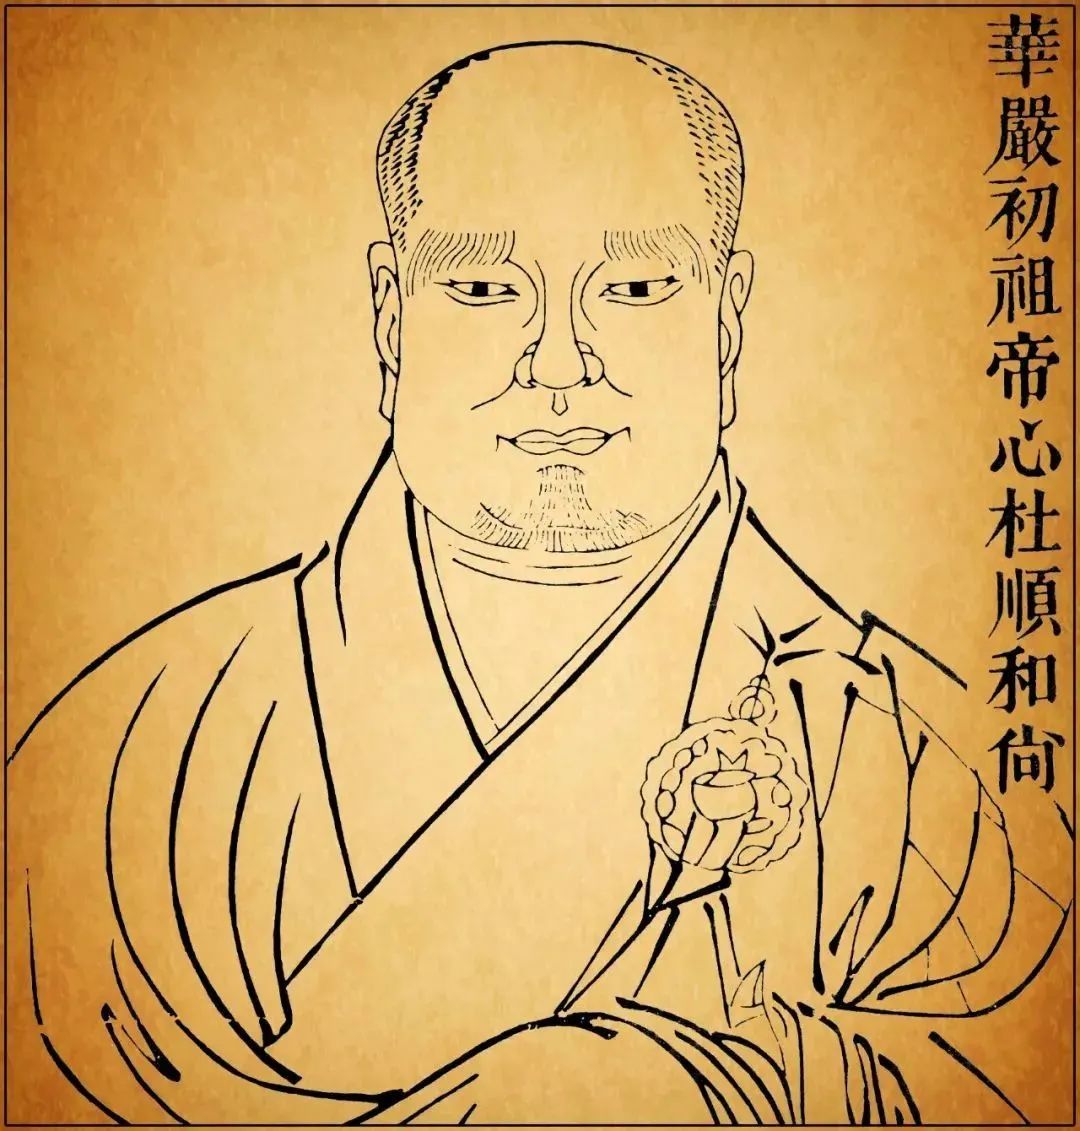 華嚴初祖帝心杜順和尚